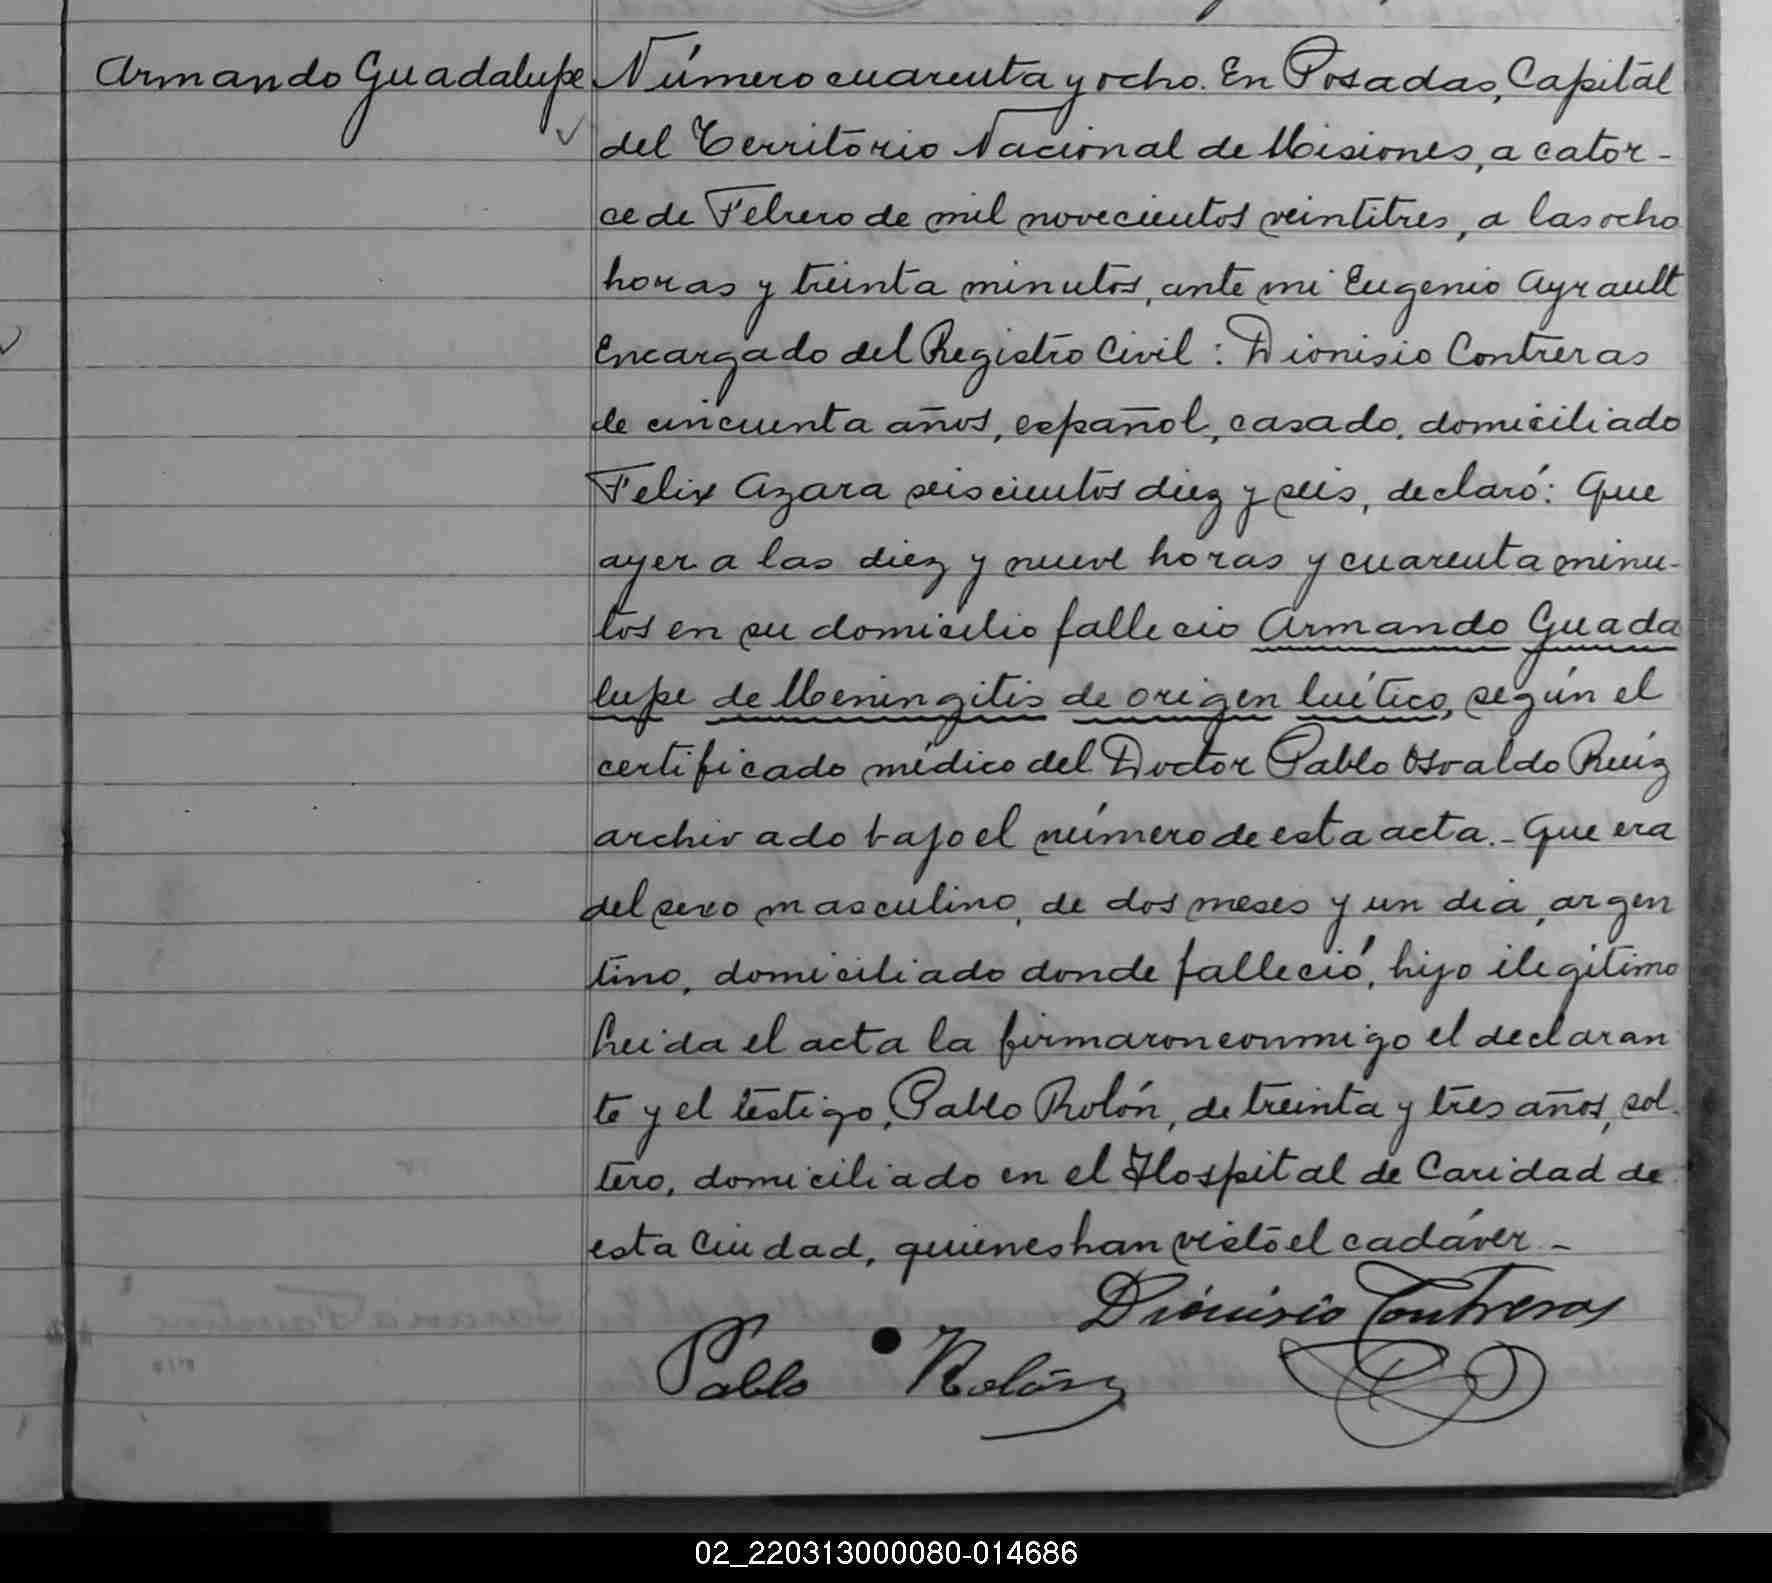 Armando Guadalupe
Número cuarenta y ocho. En Posadas, Capital
del Territorio Nacional de Misiones, a cator-
ce de Febrero de mil novecientos veintitres, a las ocho
horas y treinta minutos, ante mi Eugenio Ayrault
Encargado del Registro Civil: Dionisio Contreras
de cincuenta años, español, casado, domiciliado
Felix Azara seiscientos diez y seis, declaró: Que
ayer a las diez y nueve horas y cuarenta minu-
tos en su domicilio fallecio Armando Guada
lupe de Meningitis de origen luético, según el
certificado médico del Doctor Pablo Osvaldo Ruíz
archivado bajo el número de esta acta.- Que era
del sexo masculino, de dos meses y un dia, argen
tino, domiciliado donde falleció, hijo ilegítimo
Leida el acta la firmaron conmigo el declaran
te y el testigo, Pablo Rolón, de treinta y tres años, sol
tero, domiciliado en el Hospital de Caridad de
esta Ciudad, quienes han visto el cadáver.-
Dionisio Contreras
Pablo Rolón
02_220313000080-014686